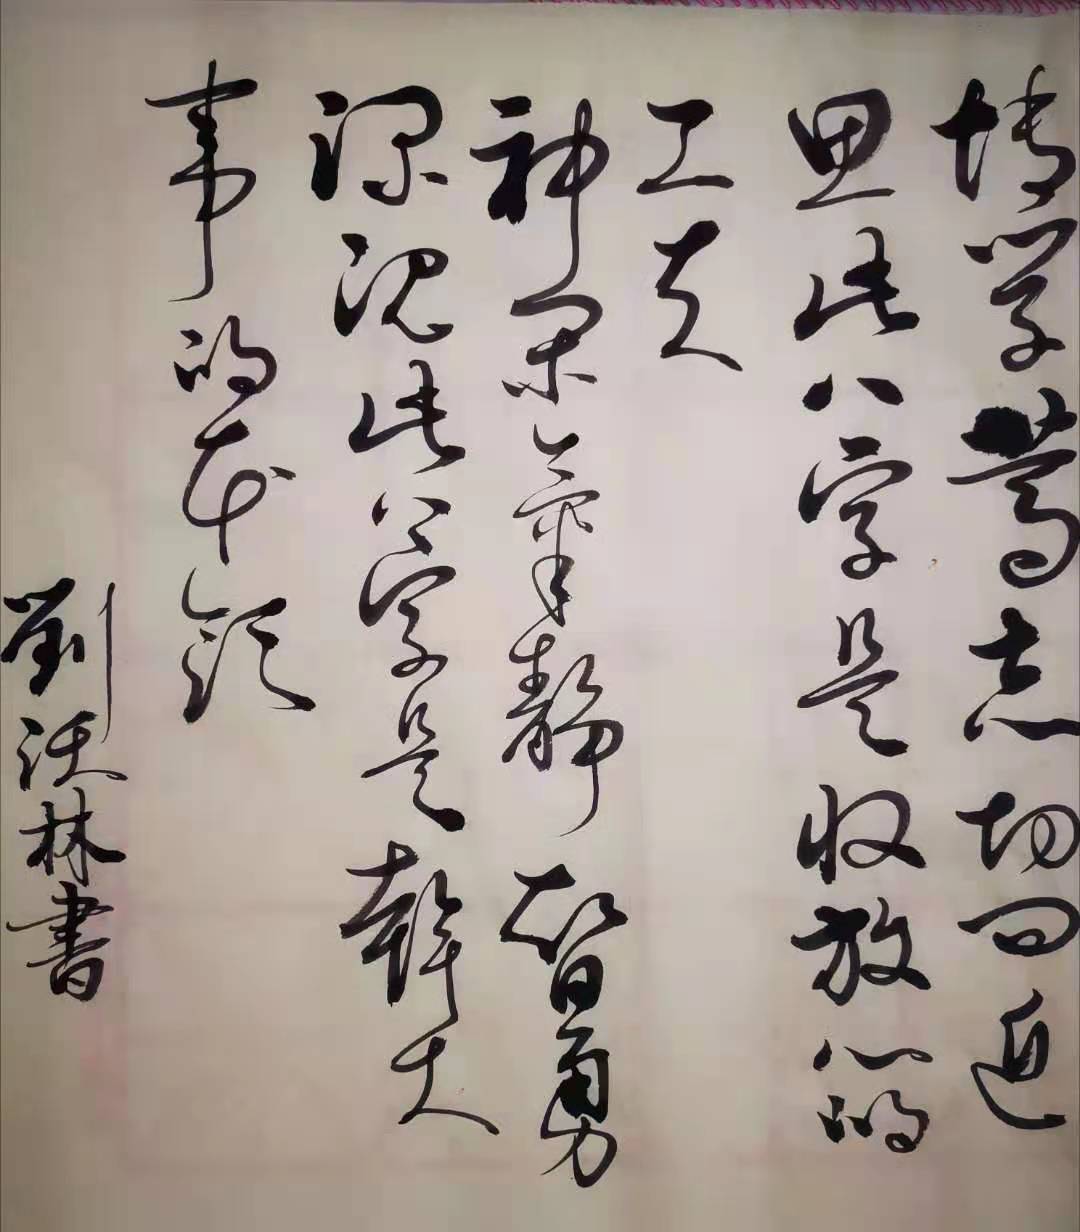 博学笃志切问近
思此八字是收放心的
工夫
神闲气静智勇
深沉此八字是幹大
事的本领
劉沃林書